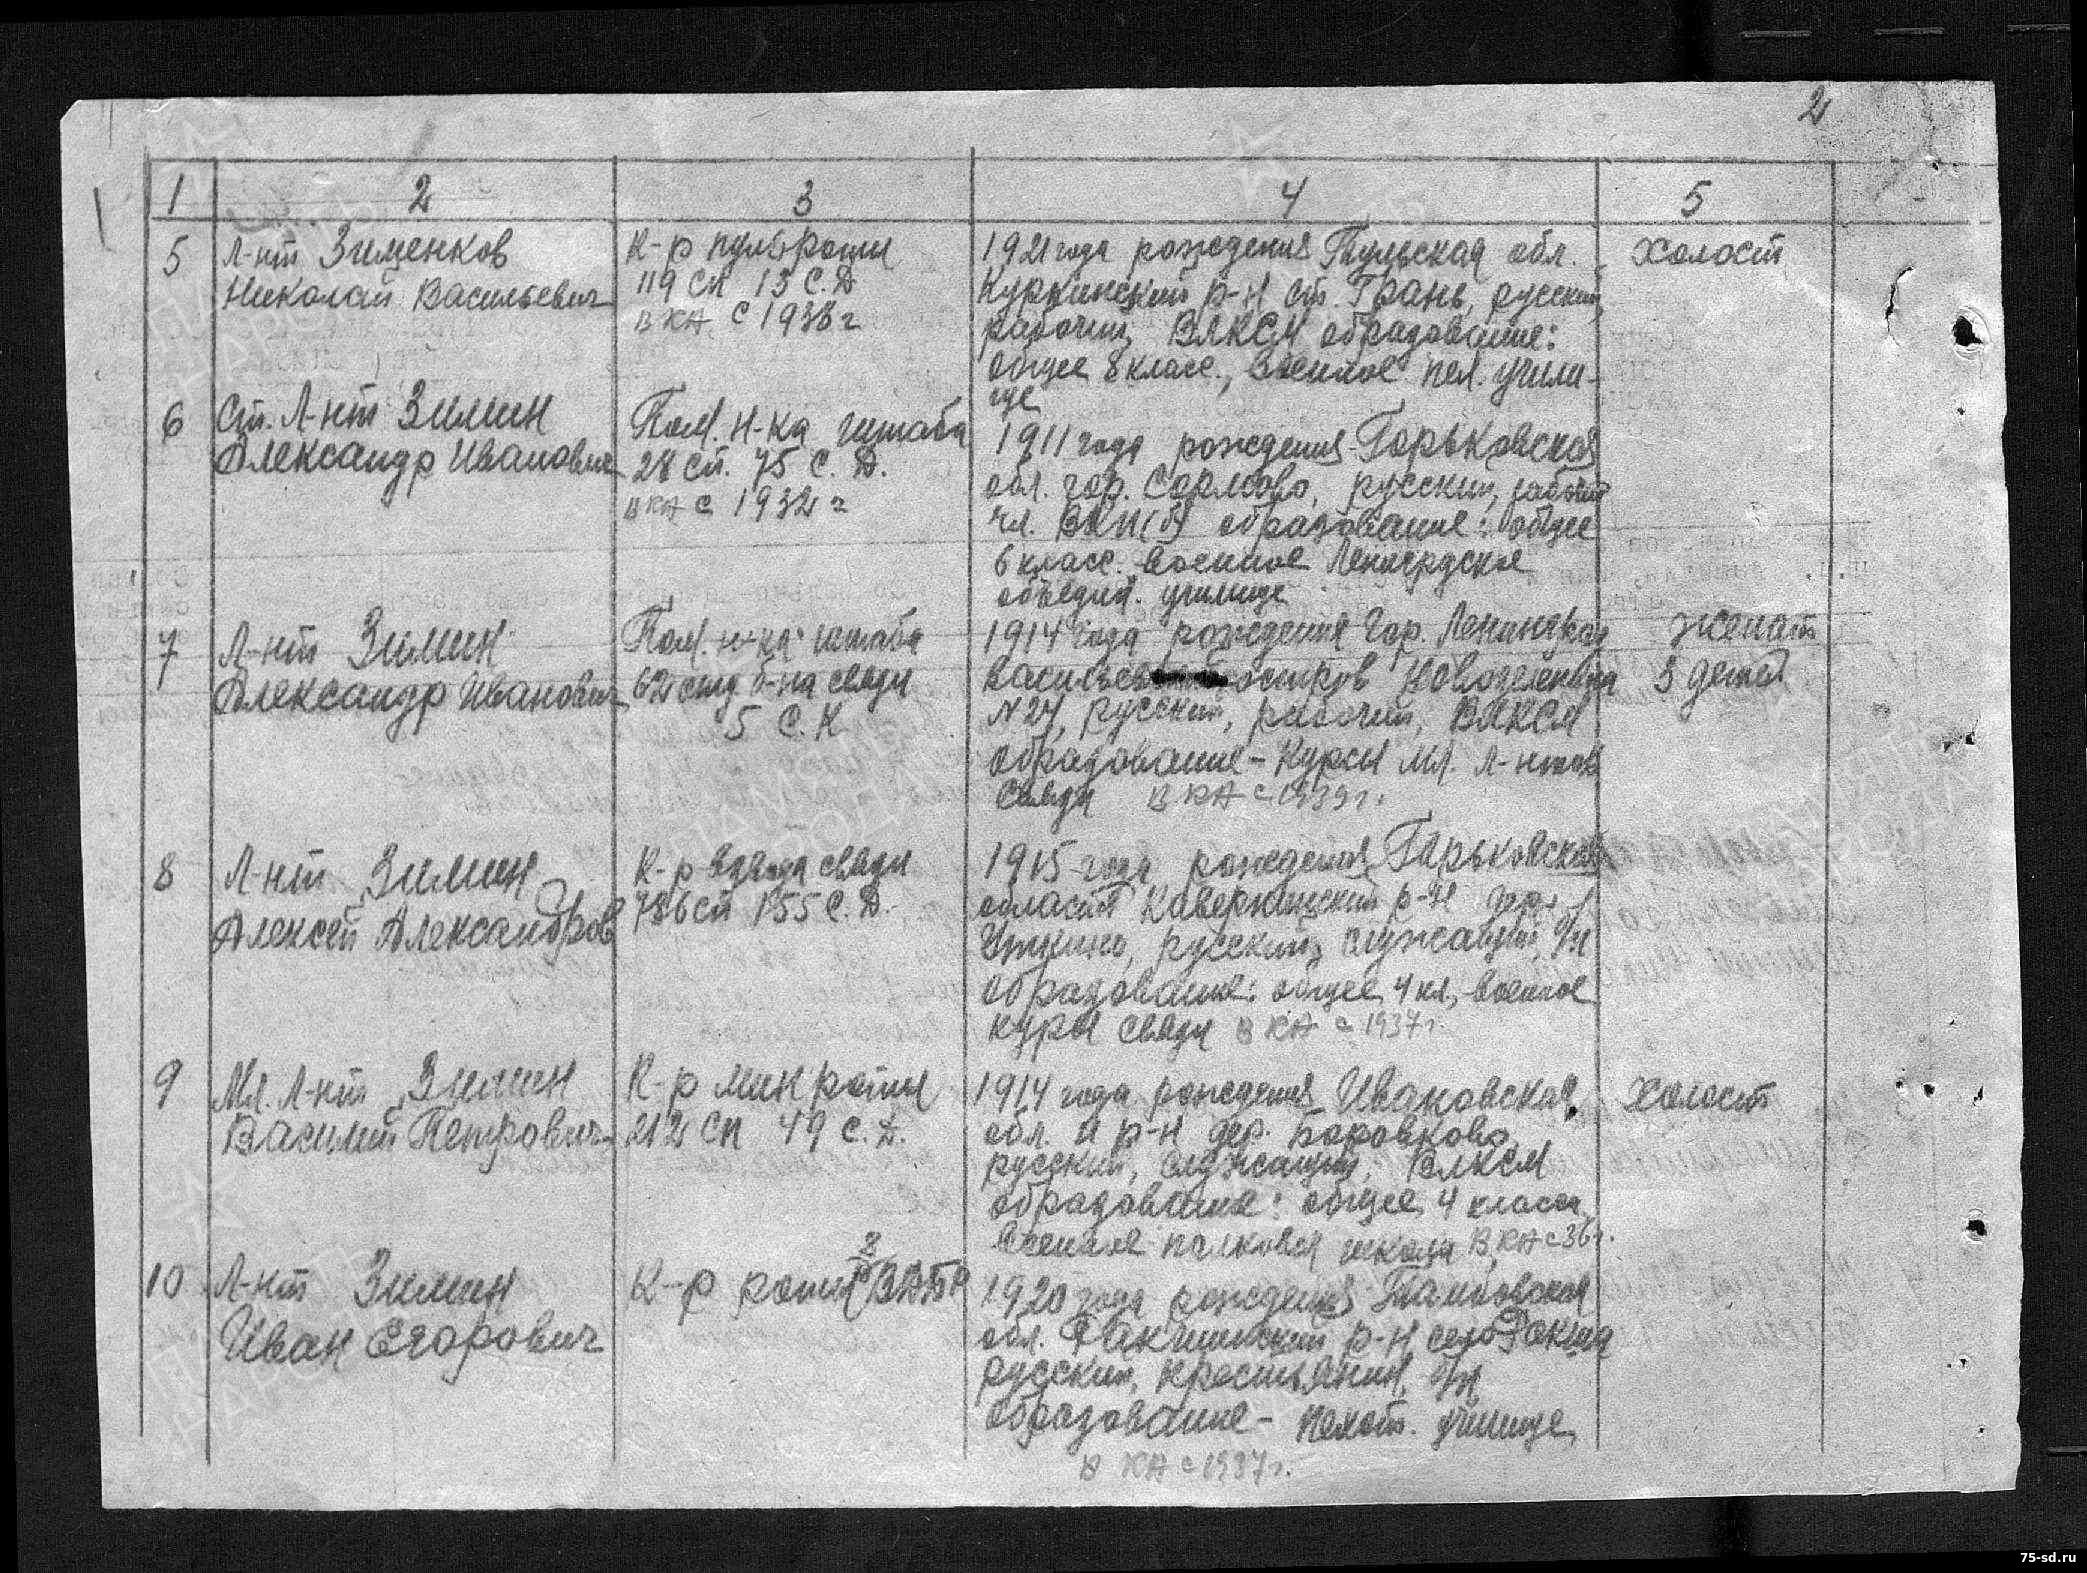 2
1 2 3 4 5
5 Л-нт Зименков
Николай Васильевич
К-р пульроты
119 СП 13 С.Д
в КА с 1938 г
1921 года рождения Тульская обл.
Куркинский р-н ст. Грань, русский,
рабочий, ВЛКСМ образование:
общее 8 класс., военное пех. учили-
ще
Холост
6 Ст. Л-нт Зимин
Александр Иванович
Пом. н-ка штаба
28 СП. 75 С. Д.
в КА с 1932 г
1911 года рождения Горьковская
обл. гор. Сормово, русский, рабочий
чл. ВКП(б) образование: общее
6 класс. военное Ленингрдское
объедин. училище
7 Л-нт Зимин
Александр Иванович
Пом. н-ка штаба
62 отд б-на связи
5 С. К
1914 года рождения гор. Ленинград
остров
№ 27, русский, рабочий, ВЛКСМ
образование - курсы мл. л-нтов
связи в КА с 1939 г.
женат
3 детей
8 Л-нт Зимин
Алексей Александров
К-р взвода связи
786 СП 155 С. Д.
1915 года рождения Горьковская
область р-н дер.
русский, служащий, б/п
образование: общее 4 кл, военное
курсы связи в КА с 1937 г.
9 Мл. Л-нт Зимин
Василий Петрович
К-р мин роты
212 СП 49 С. Д.
1914 года рождения Ивановская
обл. И р-н дер. Боровково
русский, служащий, ВЛКСМ
образование: общее 4 класса
военное полковая школа в КА с 36 г.
Холост
10 Л-нт Зимин
Иван Егорович
К-р роты
1920 года рождения Тамбовская
обл. Ракшинский р-н село Ракша
русский, крестьянин, б/п
образование - пехот. училище
в КА с 1937 г.
75-sd.ru